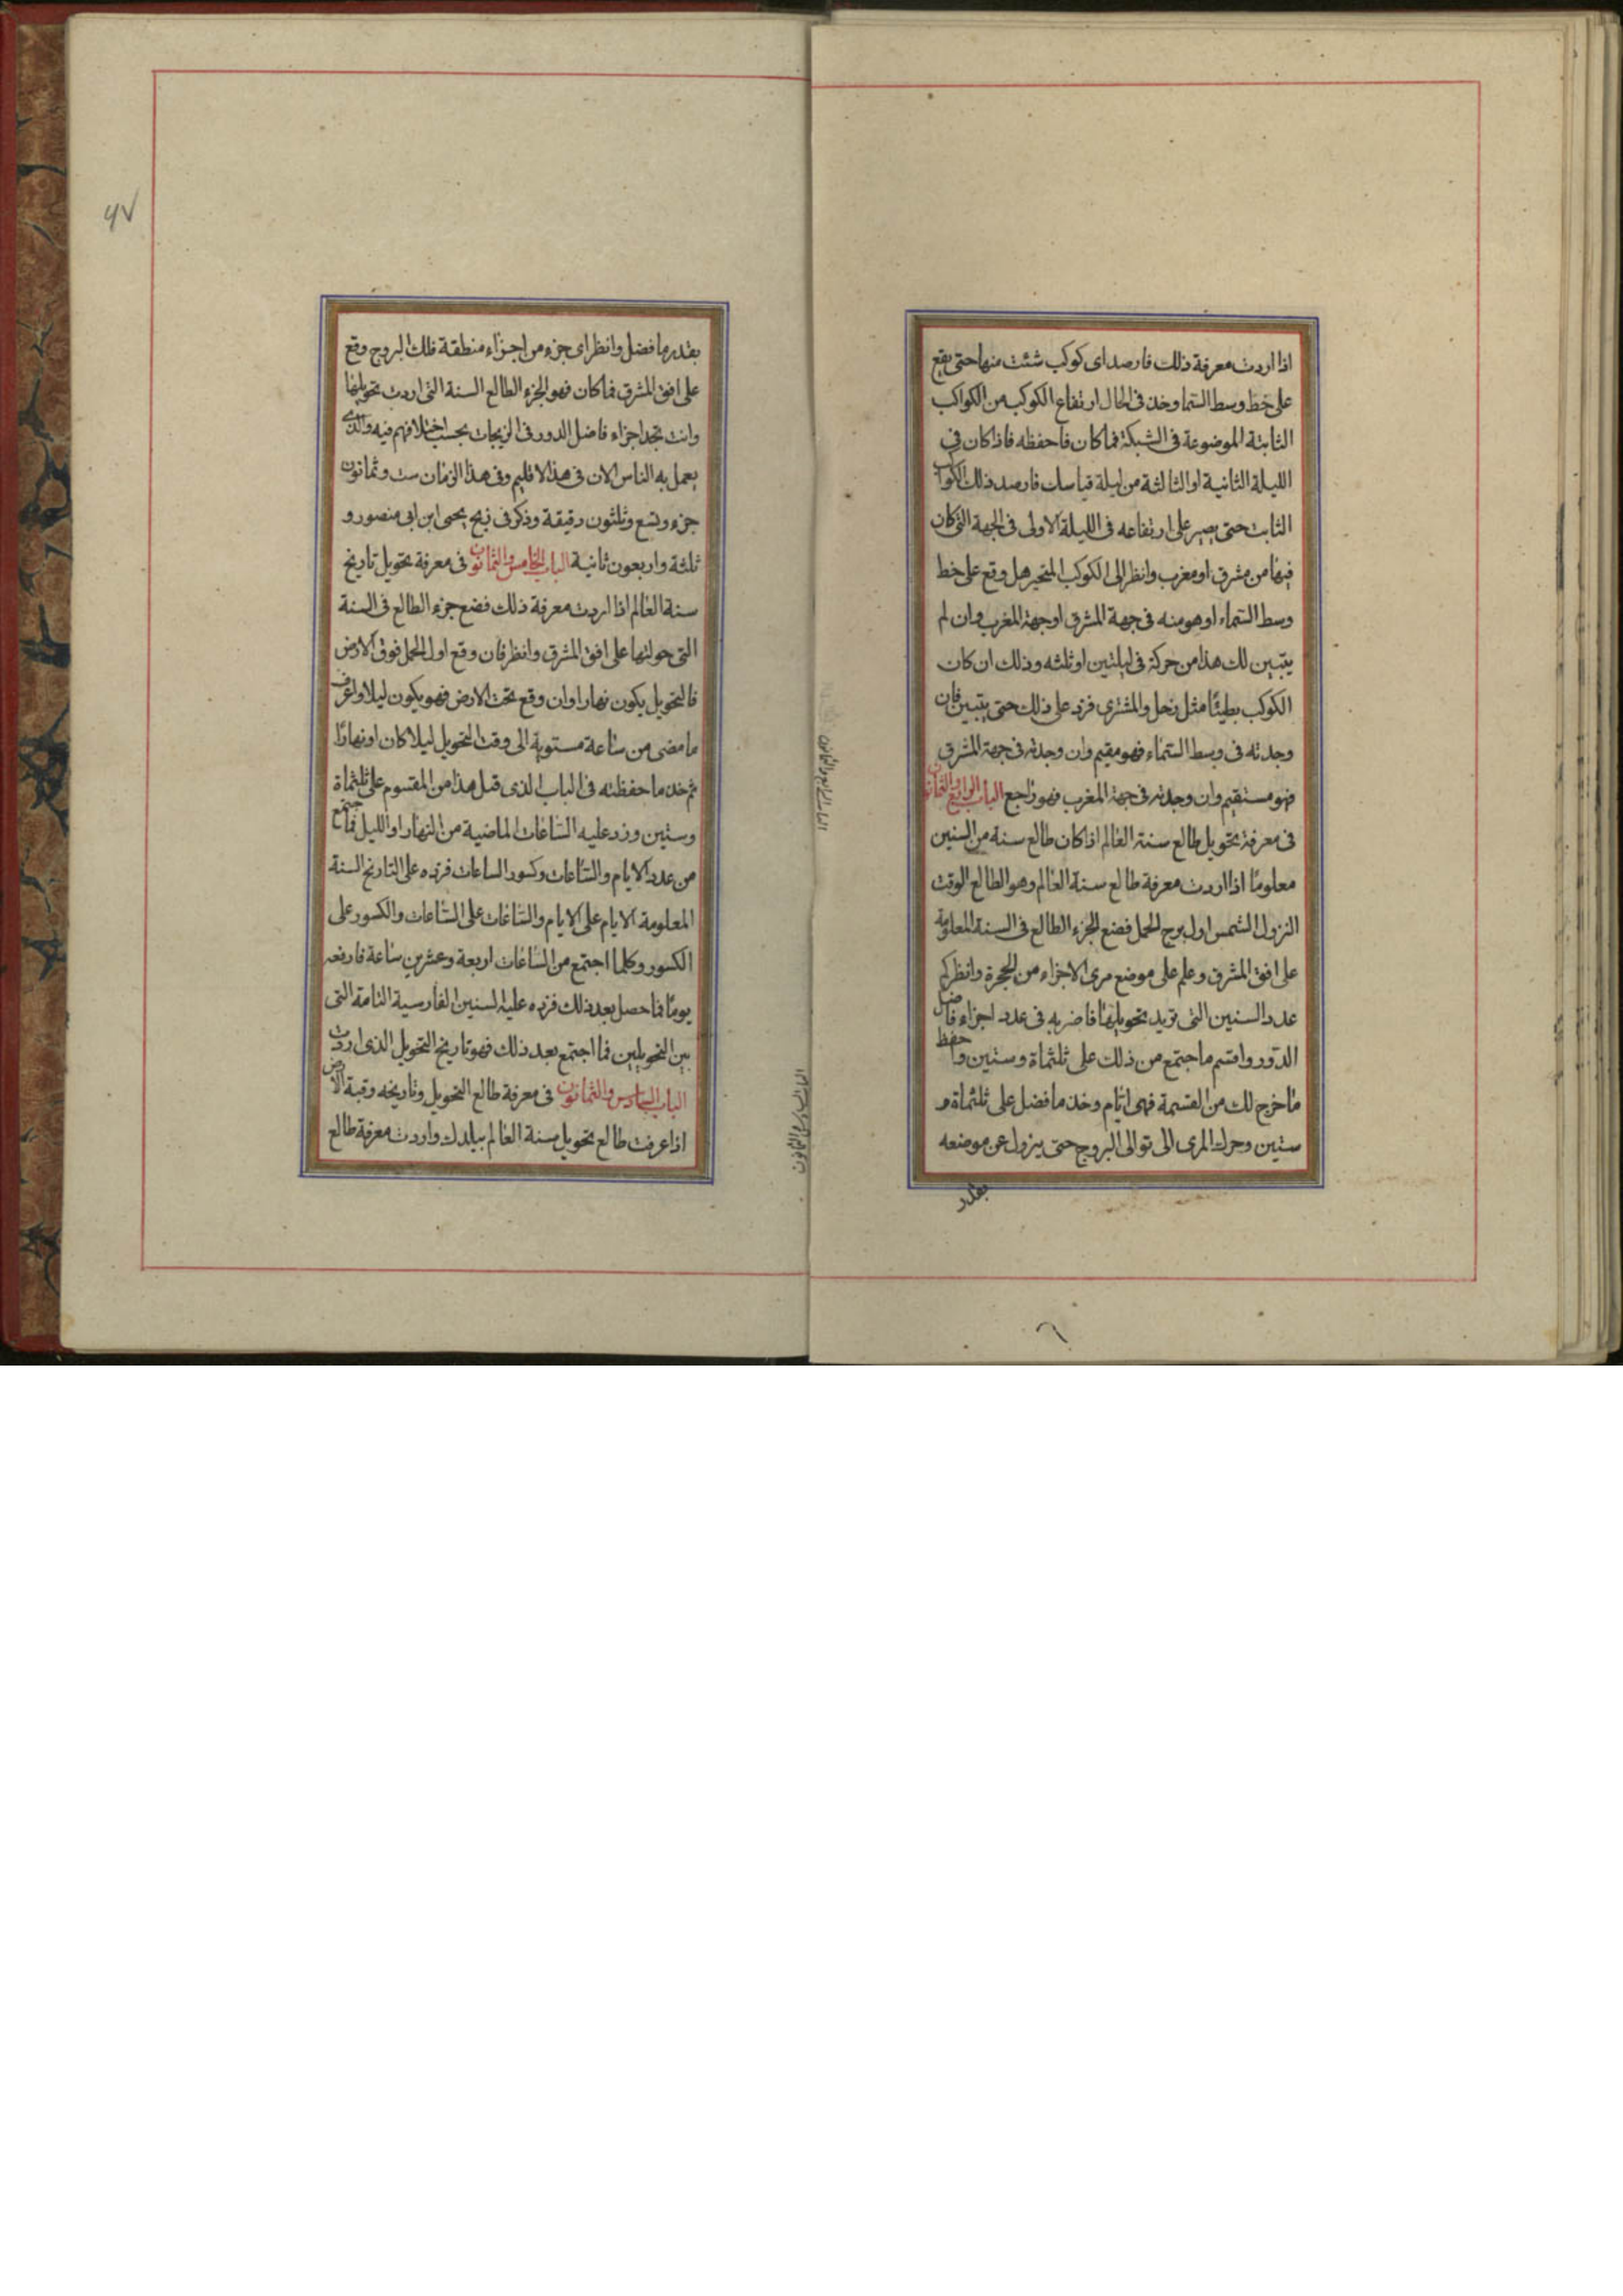 اذا اردت معرفة ذلك فارصد اى كوكب شئت منها حتى يقع
على خط وسط السما وخذ فى الحال ارتفاع الكوكب من الكواكب
الثابتة الموضوعة فى الشبكة فما كان فاحفظه فاذا كان فى
الليلة الثانية او الثالثة من ليلة قياسك فارصد ذلك الكوكب
الثابت حتى يصير على ارتفاعه فى الليلة الاولى فى الجهة التى كان
فيها من مشرق او مغرب وانظر الى الكوكب المتحير هل وقع على خط
وسط السماء او هو منه فى جهة المشرق او جهة المغرب وان لم
يتبين لك هذا من حركة فى ليلتين او ثلثه وذلك ان كان
الكوكب بطيئا مثل زحل والمشترى فزد على ذلك حتى يتبين فان
وجدته فى وسط السماء فهو مقيم وان وجدته فى جهة المشرق
فهو مستقيم وان وجدته فى جهة المغرب فهو راجع الباب الرابع والثمانون
فى معرفة تحويل طالع سنة العالم اذا كان طالع سنة من السنين
معلومًا اذا اردت معرفة طالع سنة العالم وهو الطالع الوقت
النزول الشمس اول برج الحمل فضع الجزء الطالع فى السنة المعلومة
على افق المشرق وعلم على موضع مرى الاجزاء من الحجرة وانظر كم
عدد السنين التى تريد تحويلها فاضربه فى عدد اجزاء فاضل
الدور واقسم ما جتمع من ذلك على ثلثماة وستين واحفظ
ما خرج لك من القسمة فهى ايام وخذ ما فضل على ثلثماة و
ستين وحرك المرى الى توالى البروج حتى يزول عن موضعه
بقدر
الباب الرابع والثمانون
بقدر ما فضل وانظر اى جزء من اجزاء منطقة فلك البروج وقع
على افق المشرق فما كان فهو الجزء الطالع السنة التى اردت تحويلها
وانت تجد اجزاء فاضل الدور فى الزيجات بحسب اختلافهم فيه والذى
يعمل به الناس الان فى هذا الاقليم وفى هذا الزمان ست وثمانون
جزء وتسع وثلثون دقيقة وذكر فى زيج يحيى ابن ابى منصور و
ثلثة واربعون ثانية الباب الخامس والثمانون فى معرفة تحويل تاريخ
سنة العالم اذا اردت معرفة ذلك فضع جزء الطالع فى السنة
التى حولتها على افق المشرق وانظر فان وقع اول الحمل فوق الارض
فالتحويل يكون نهارا وان وقع تحت الارض فهو يكون ليلا واعرف
ما مضى من ساعة مستوية الى وقت التحويل ليلا كان او نهارًا
ثم خذ ما حفظته فى الباب الذى قبل هذا من المقسوم على ثلثماة
وستين وزد عليه الساعات الماضية من النهار او الليل فما اجتمع
من عدد الايام والساعات وكسور الساعات فزده على التاريخ السنة
المعلومة الايام على الايام والساعات على الساعات والكسور على
الكسور وكلما اجتمع من الساعات اربعة وعشرين ساعة فارفعه
يومًا فما حصل بعد ذلك فزده عليه السنين الفارسية التامة التى
بين التحويلين فما اجتمع بعد ذلك فهو تاريخ التحويل الذى اردت
الباب السادس والثمانون فى معرفة طالع التحويل وتاريخه وقبة الارض
اذا عرفت طالع تحويل سنة العالم ببلدك واردت معرفة طالع
الباب السادس والثمانون
۶۷